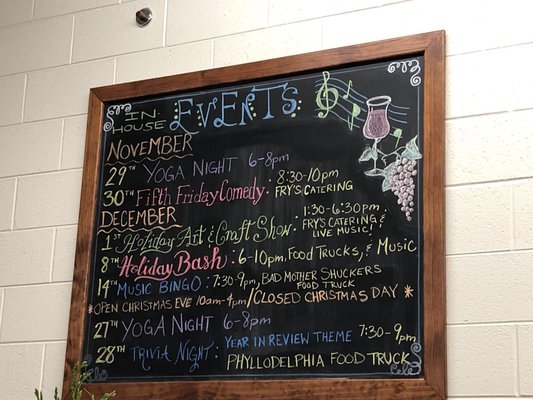 IN-HOUSE EVENTS
NOVEMBER
29TH YOGA NIGHT 6-8pm
30TH Fifth Friday Comedy: 8:30-10pm
FRY'S CATERING
DECEMBER
1ST Holiday Art & Craft Show: 1:30-6:30pm,
FRY'S CATERING &
LIVE MUSIC!
8TH Holiday Bash: 6-10pm, Food Trucks, & Music
14TH MUSIC BINGO: 7:30-9pm, BAD MOTHER SHUCKERS
FOOD TRUCK
*OPEN CHRISTMAS EVE 10am-4pm/CLOSED CHRISTMAS DAY*
27TH YOGA NIGHT 6-8pm
28TH TRIVIA NIGHT: YEAR IN REVIEW THEME 7:30-9pm
PHYLLODELPHIA FOOD TRUCK